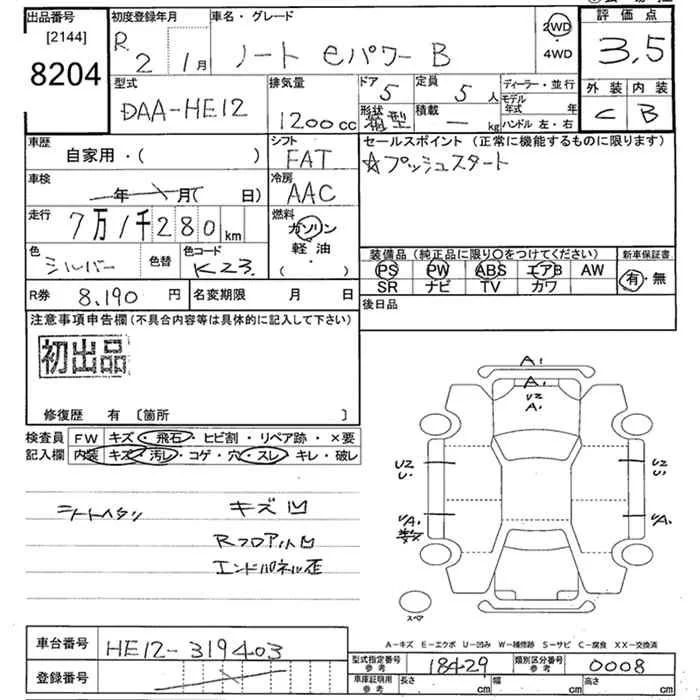 出品番号 初度登録年月 車名・グレード 評価点
[2144] R 2 1月 ノート eパワー B 2WD・4WD 3.5
8204 型式 排気量 ドア 5 定員 5人 ディーラー・並行 外装 内装
DAA-HE12 1200cc 形状 箱型 積載 - kg モデル年式 年 C B
ハンドル 左・右
車歴 シフト セールスポイント(正常に機能するものに限ります)
自家用・( ) FAT ☆プッシュスタート
車検 冷房
年 月( 日) AAC
走行 燃料
7万1千280km ガソリン
軽・油
( ・ )
色 色替 色コード 装備品(純正品に限り○をつけてください) 新車保証書
シルバー K23 PS PW ABS エアB AW 有・無
SR ナビ TV カワ
R券 8,190円 名変期限 月 日 後日品
注意事項申告欄(不具合内容等は具体的に記入して下さい)
初出品
修復歴 有 〔箇所 〕
検査員 FW キズ・飛石・ヒビ割・リペア跡・×要
記入欄 内装 キズ・汚レ・コゲ・穴・スレ・キレ・破レ
シートヘタリ キズ凹
Rフロア凹
エンドパネル歪
A1
A1
U2
A1
U2
U1
U2
U1
UA1
UA1
スペア
A-キズ E-エクボ U-凹み W-補修跡 S-サビ C-腐食 XX-交換済
車台番号 HE12-319403 型式指定番号 参考 18429 類別区分番号 参考 0008
登録番号 車庫証明用 参考 長さ cm 幅 cm 高さ cm